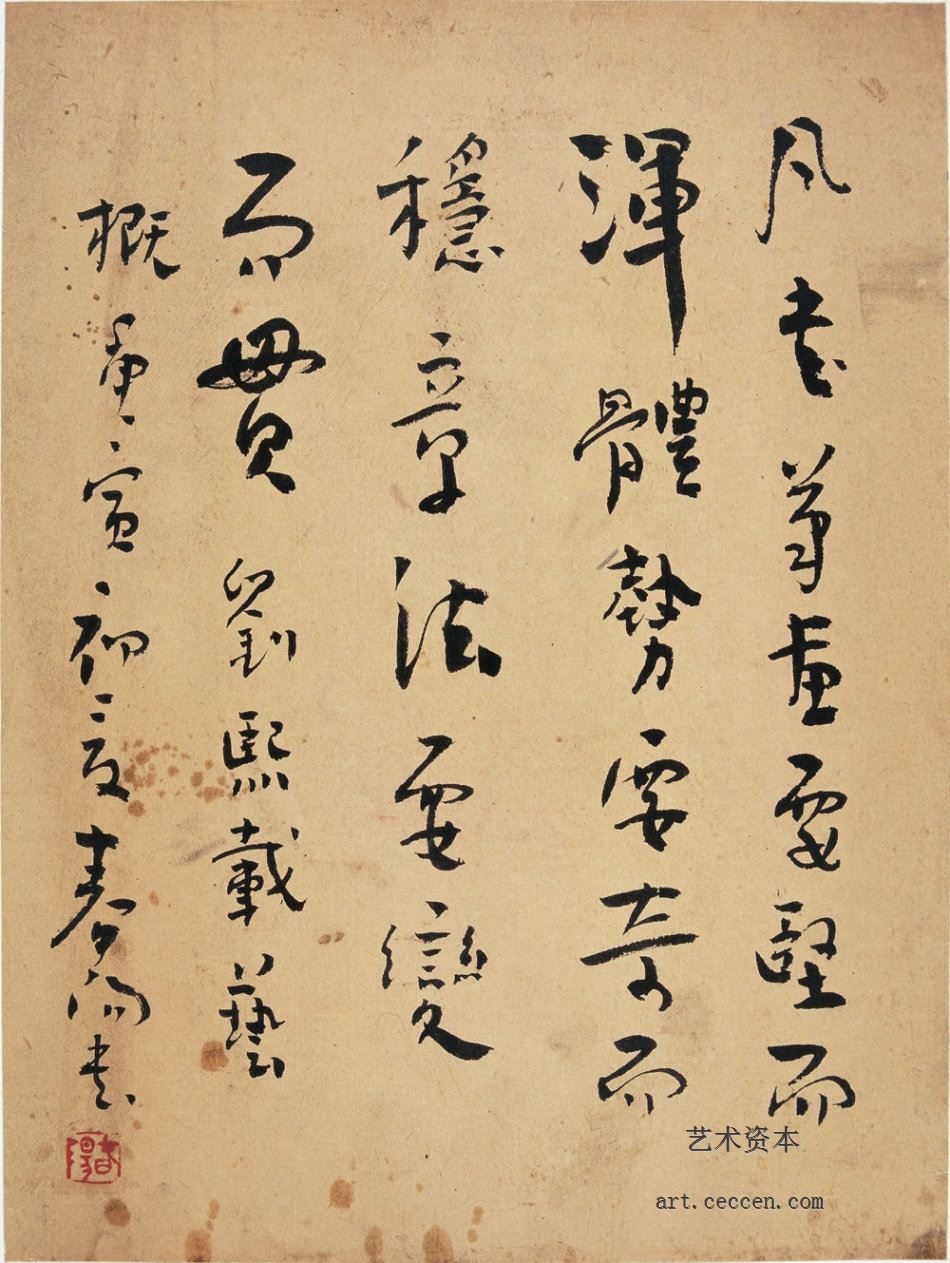 凡書筆畫要堅而
渾體勢要奇而
穩章法要變
而貫劉熙載藝
概庚寅初夏春陽書
春陽
艺术资本
art.ceccen.com